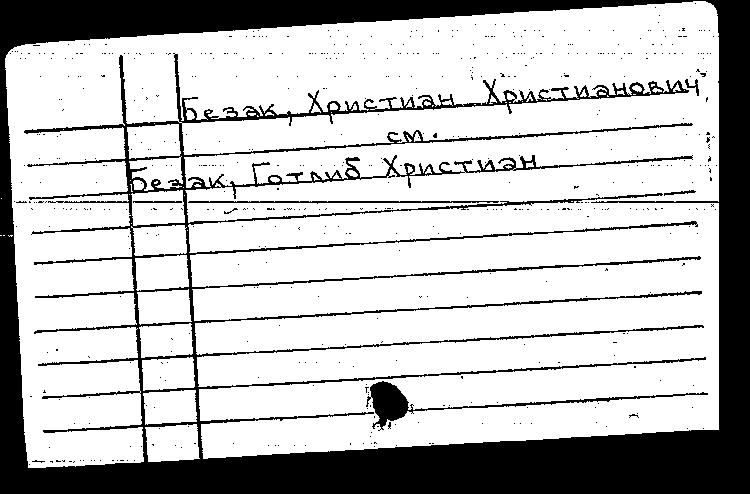 Безак, Христиан Христианович
см.
Безак, Готлиб Христиан